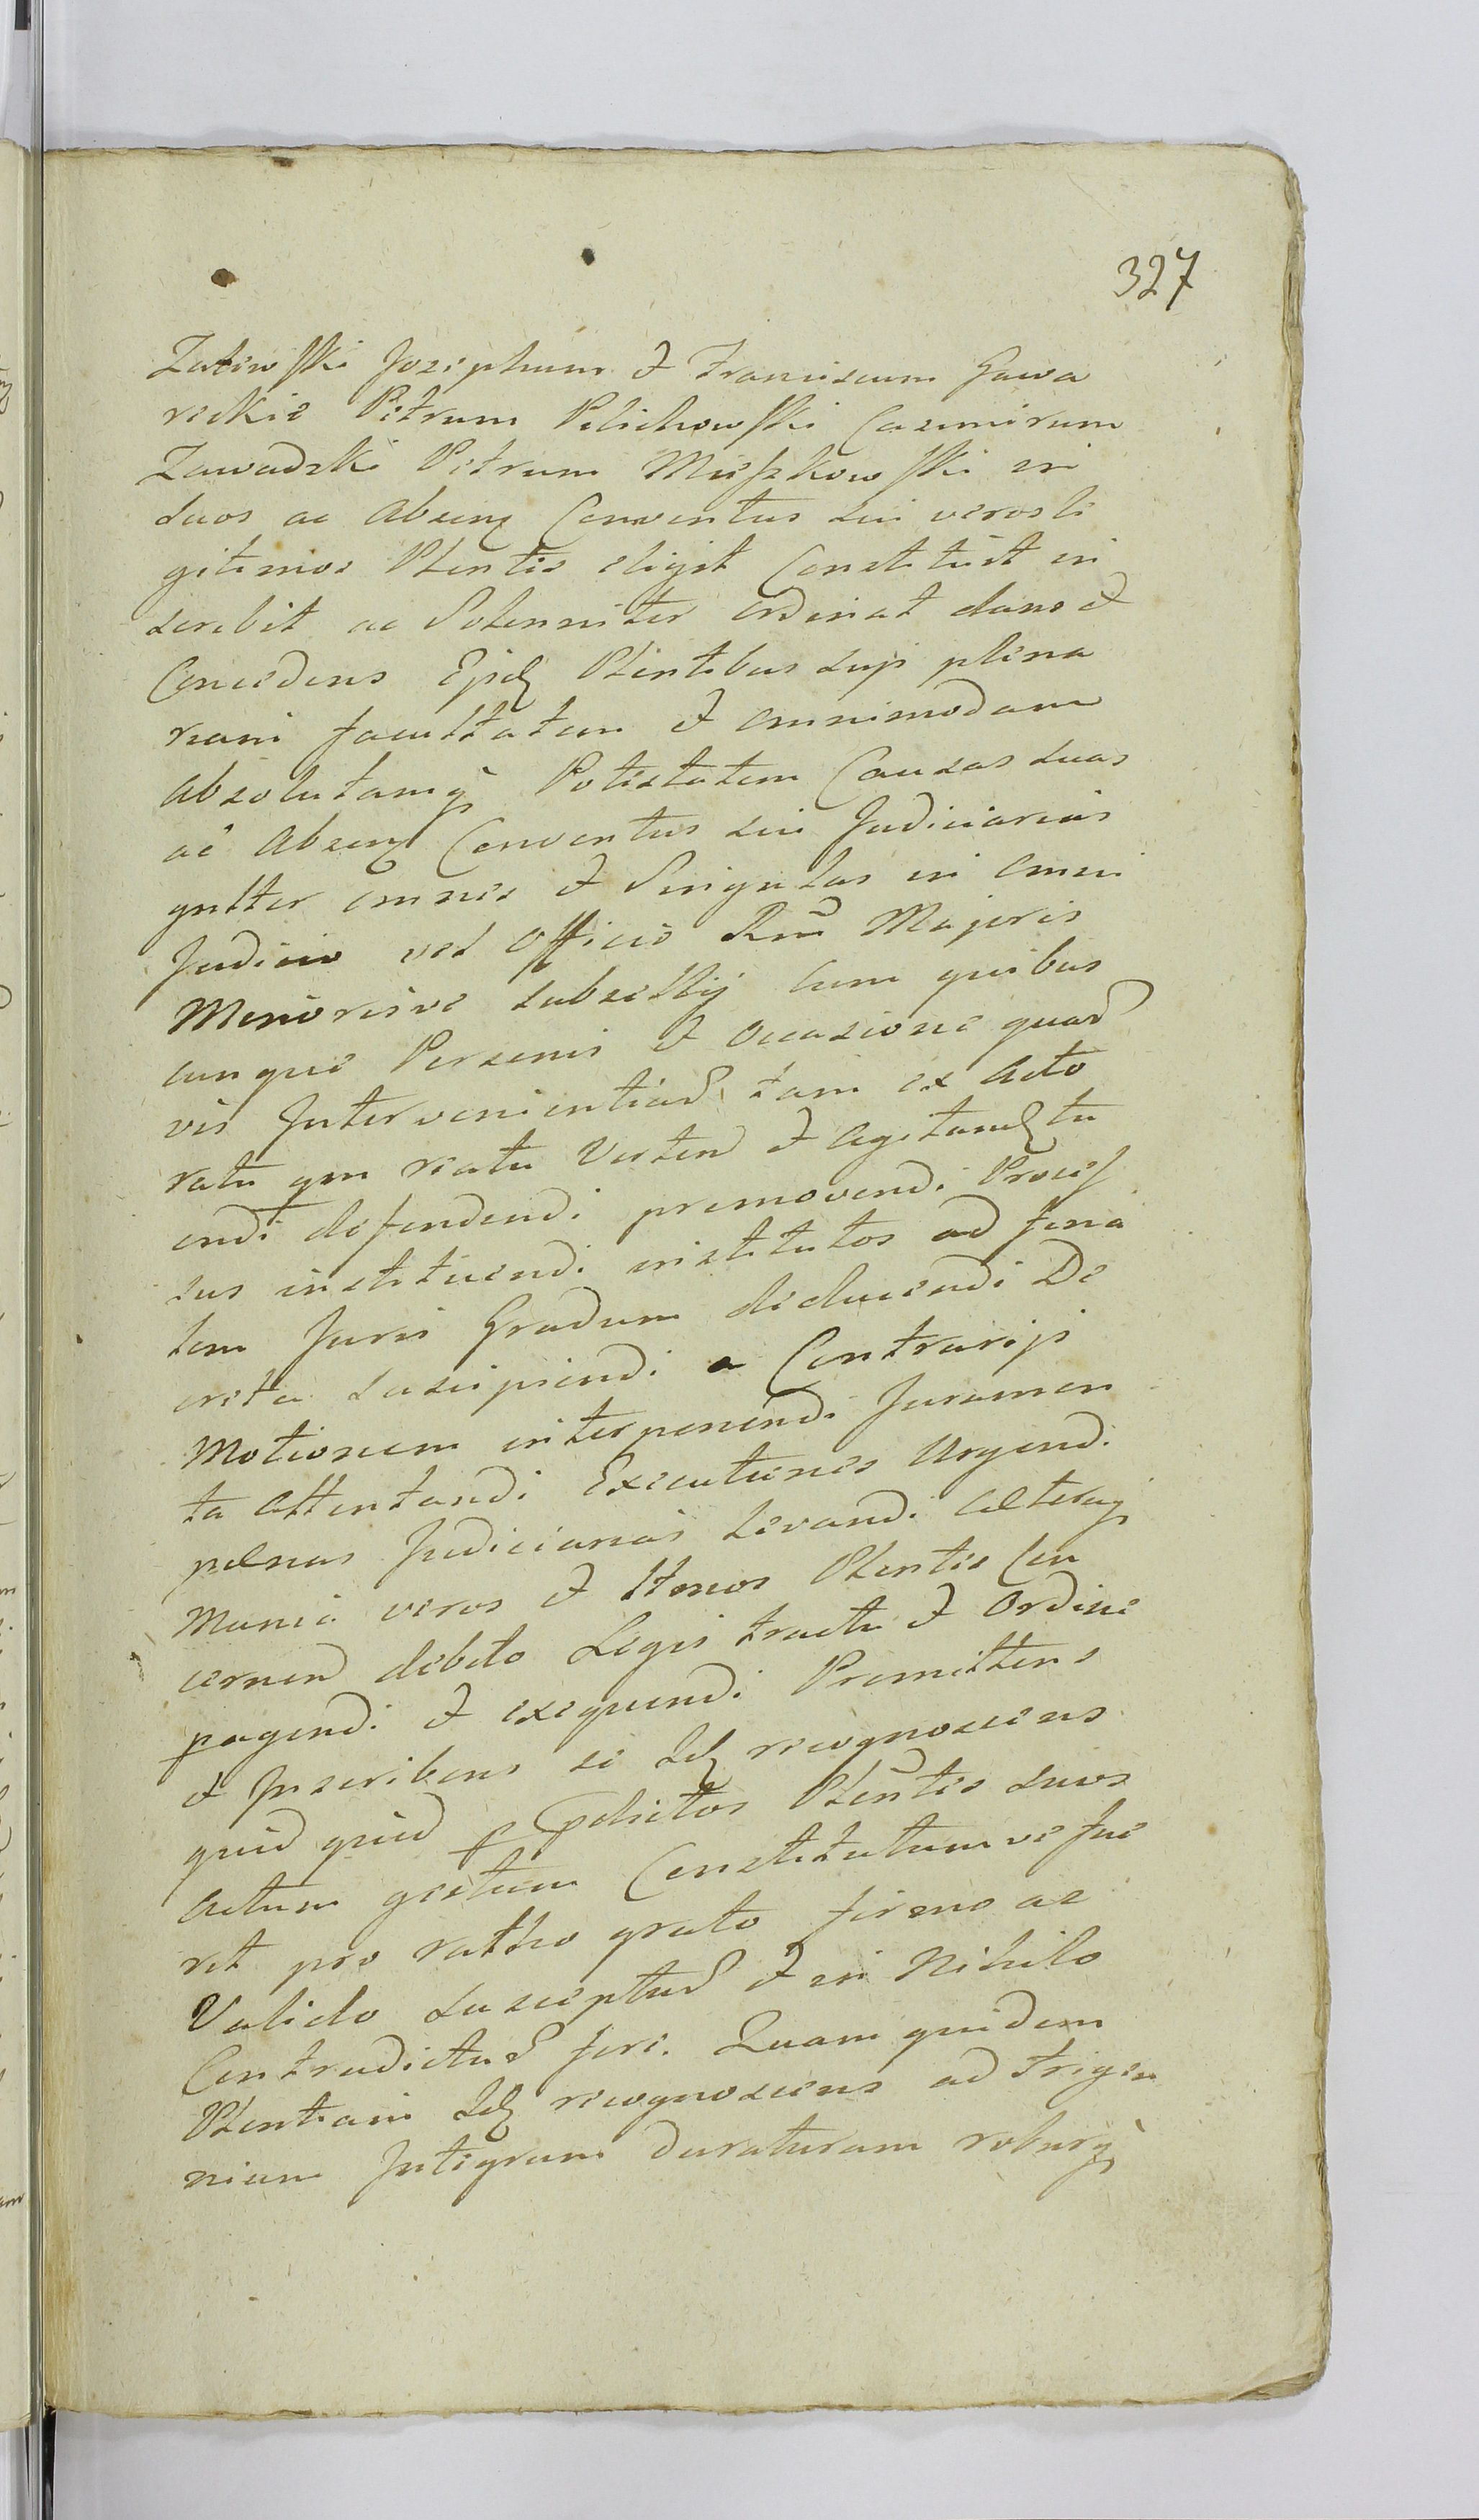 327
Zalewski Josephum et Franciscum Gawa
reckie Petrum Pelichowski Casimirum
Zawadzki Petrum Mieszkowski in
suos ac absenq Conventus sui veros le
gitimos Plentes eligit Constituit in
scribit ac Solenniter ordinat dans et
Concedens Ejsdq Plentibus suis plena
riam facultatem et omnimodam
absolutamq Potestatem Causas suas
ac absenq Conventus sui Judiciarias
gnlter omnes et Singulas in omni
Judicio vel Officio Rni Majoris
Minorisve subsellij Cum quibus
cunque Personis et occasione quad
vis Intervenientiad tam ex acto
ratu qm reatu Verten et agitandq tu
endi defendendi promovendi Proces
sus instituendi institutos ad fina
lem Juris Gradum deducendi De
creta suscipiendi a Contrarijs
Motionem interponendi Juramen
ta attentandi Executiones Urgendi
pœnas Judiciarias Levandi cæteraq
Munia veros et ltmos Plentes Con
cernen debito Legis tractu et ordine
pagendi et exequendi Promittens
et Inscribens se Idq recognoscens
quid quid p pdictos Plentes suos
actum gestum Constitutumve fue
rit pro ratho grato firmo ac
Valido susceptud et in Nihilo
Contradictud fore. Quam quidem
Plentiam Idq recognoscens ad Trigen
nium Integrum duraturam roburq